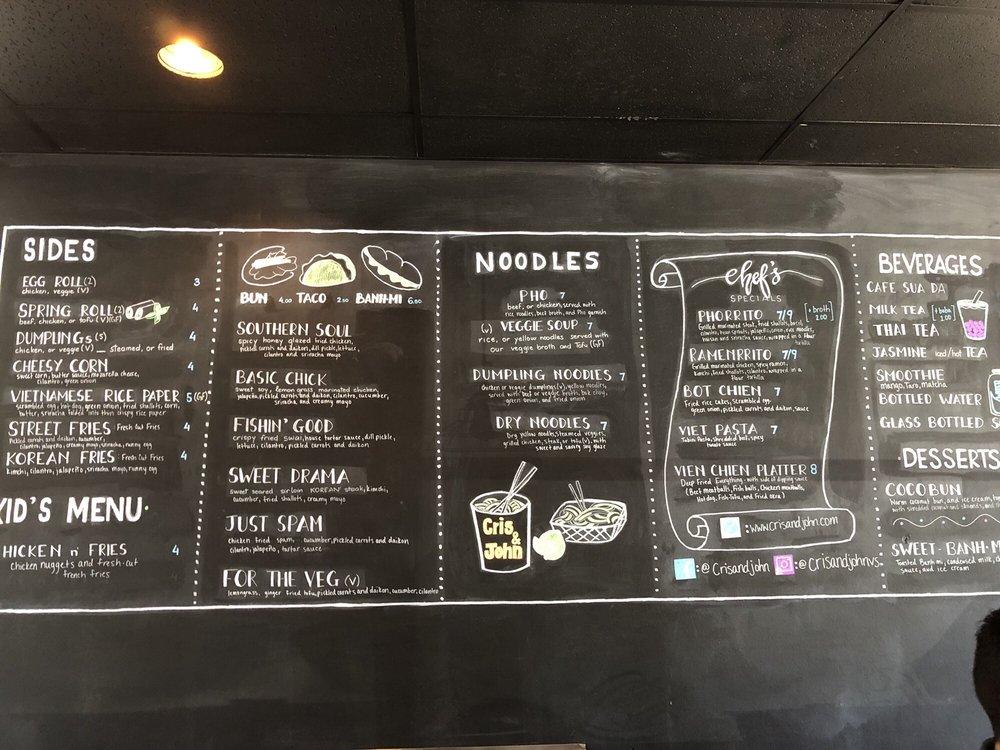 SIDES
EGG ROLL(2) 3
chicken, veggie (V)
SPRING ROLL(2) 4
beef, chicken, or tofu (V)(GF)
DUMPLINGS(5) 4
chicken, or veggie(V) _ steamed, or fried
CHEESY CORN 4
sweet corn, butter sauce, mozarella cheese,
cilantro, green onion
VIETNAMESE RICE PAPER 5 (GF)
scrambled egg, hot dog, green onion, fried shallots, corn,
butter, sriracha folded into thin crispy rice paper
STREET FRIES -Fresh Cut Fries 4
Pickled carrots and daikon, cucumber,
cilantro, jalapeño, creamy mayo, sriracha, runny egg
KOREAN FRIES -Fresh Cut Fries 4
kimchi, cilantro, jalapeño, sriracha mayo, runny egg
KID'S MENU
CHICKEN n' FRIES 4
chicken nuggets and fresh-cut
french fries
BUN 4.00 TACO 2.50 BANH-MI 6.00
SOUTHERN SOUL
spicy honey glazed fried chicken,
pickled carrots and daikon, dill pickle, lettuce,
cilantro and sriracha mayo
BASIC CHICK
sweet soy, lemon grass marinated chicken,
jalapeño, pickled carrots and daikon, cilantro, cucumber,
sriracha and creamy mayo
FISHIN' GOOD
crispy fried swai, house tartar sauce, dill pickle,
lettuce, cilantro, pickled carrots and daikon
SWEET DRAMA
sweet seared sirloin KOREAN steak, kimchi,
cucumber, fried shallots, creamy mayo
JUST SPAM
chicken fried spam, cucumber, pickled carrots and daikon
cilantro, jalapeño, tartar sauce
FOR THE VEG (V)
lemongrass, ginger fried tofu, pickled carrots, and daikon, cucumber, cilantro
NOODLES
PHO 7
beef, or chicken, served with
rice noodles, beef broth, and Pho garnish
(V) VEGGIE SOUP 7
rice, or yellow noodles served with
our veggie broth and Tofu (GF)
DUMPLING NOODLES 7
Chicken or veggie dumplings(V), yellow noodles,
served with beef or veggie broth, bok choy,
green onion, and fried onion
DRY NOODLES 7
Dry yellow noodles, steamed veggies,
grilled chicken, steak, or tofu(V), with
sweet and savory soy glaze
Cris
&
John
chef's
SPECIALS
PHORRITO 7/9 + broth 2.00
Grilled marinated steak, fried shallots, basil,
cilantro, bean sprouts, jalapeño, onion, rice noodles,
hoisin and sriracha sauce, wrapped in a flour
tortilla
RAMENRRITO 7/9
Grilled marinated chicken, spicy ramen,
kimchi, fried shallots, cilantro, wrapped in a
flour tortilla
BOT CHIEN 7
Fried rice cakes, scrambled egg
green onion, pickled carrots and daikon, sauce
VIET PASTA 7
spicy
tomato sauce
VIEN CHIEN PLATTER 8
Deep Fried Everything - with side of dipping sauce
(Beef meatballs, Fish balls, Chicken meatballs,
Hotdog, Fish Tofu, and fried okra)
: www.crisandjohn.com
:@Crisandjohn :@crisandjohnvs.
BEVERAGES
CAFE SUA DA
MILK TEA + boba 1.00
THAI TEA
JASMINE iced/hot TEA
SMOOTHIE
mango, Taro, matcha
BOTTLED WATER
GLASS BOTTLED S
DESSERTS
COCOBUN
Warm coconut bun, and ice cream,
with shredded coconut and almonds, and
SWEET-BANH-M
Toasted Banh mi, condensed milk,
sauce, and ice cream